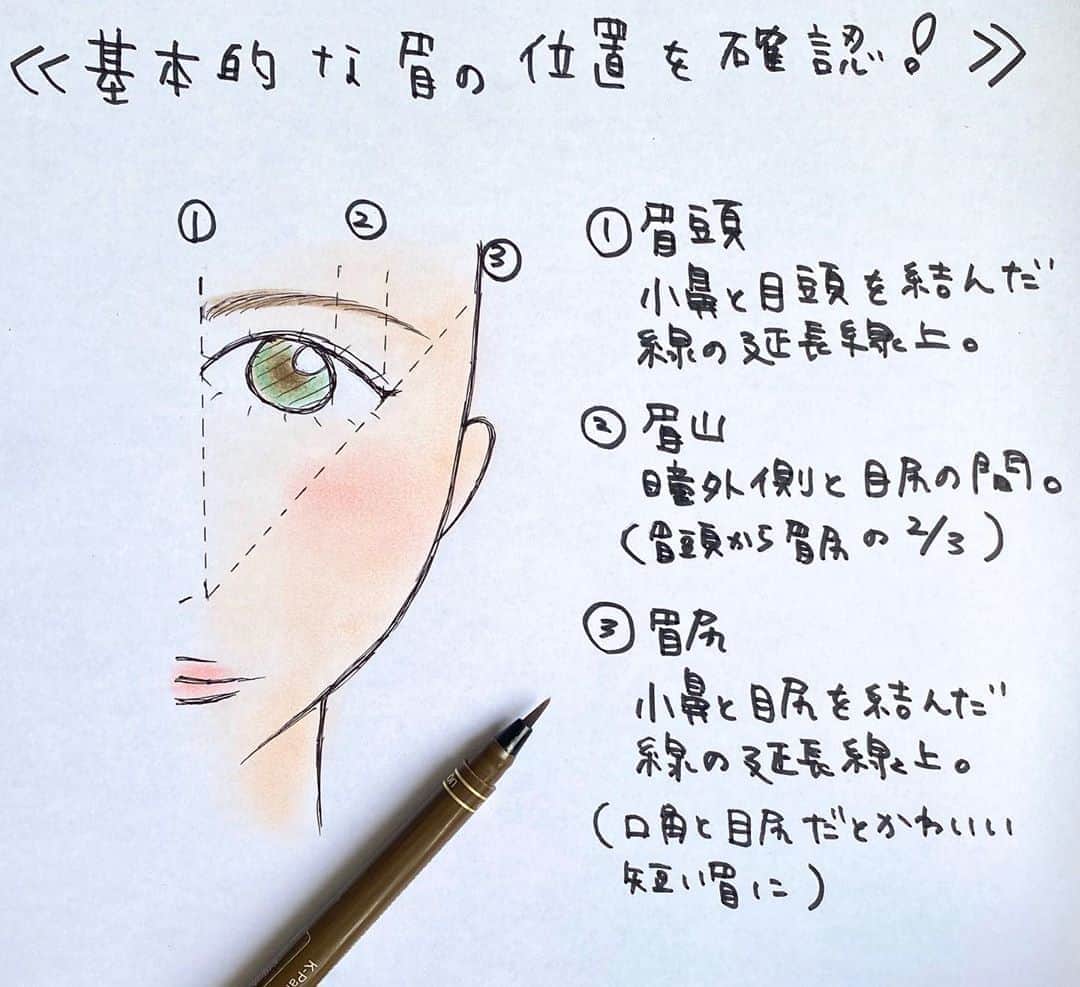 ≪基本的な眉の位置を確認!≫
① ② ③
①眉頭
小鼻と目頭を結んだ
線の延長線上。
②眉山
瞳外側と目尻の間。
(眉頭から眉尻の2/3)
③眉尻
小鼻と目尻を結んだ
線の延長線上。
(口角と目尻だとかわいい
短い眉に)
K-Pa